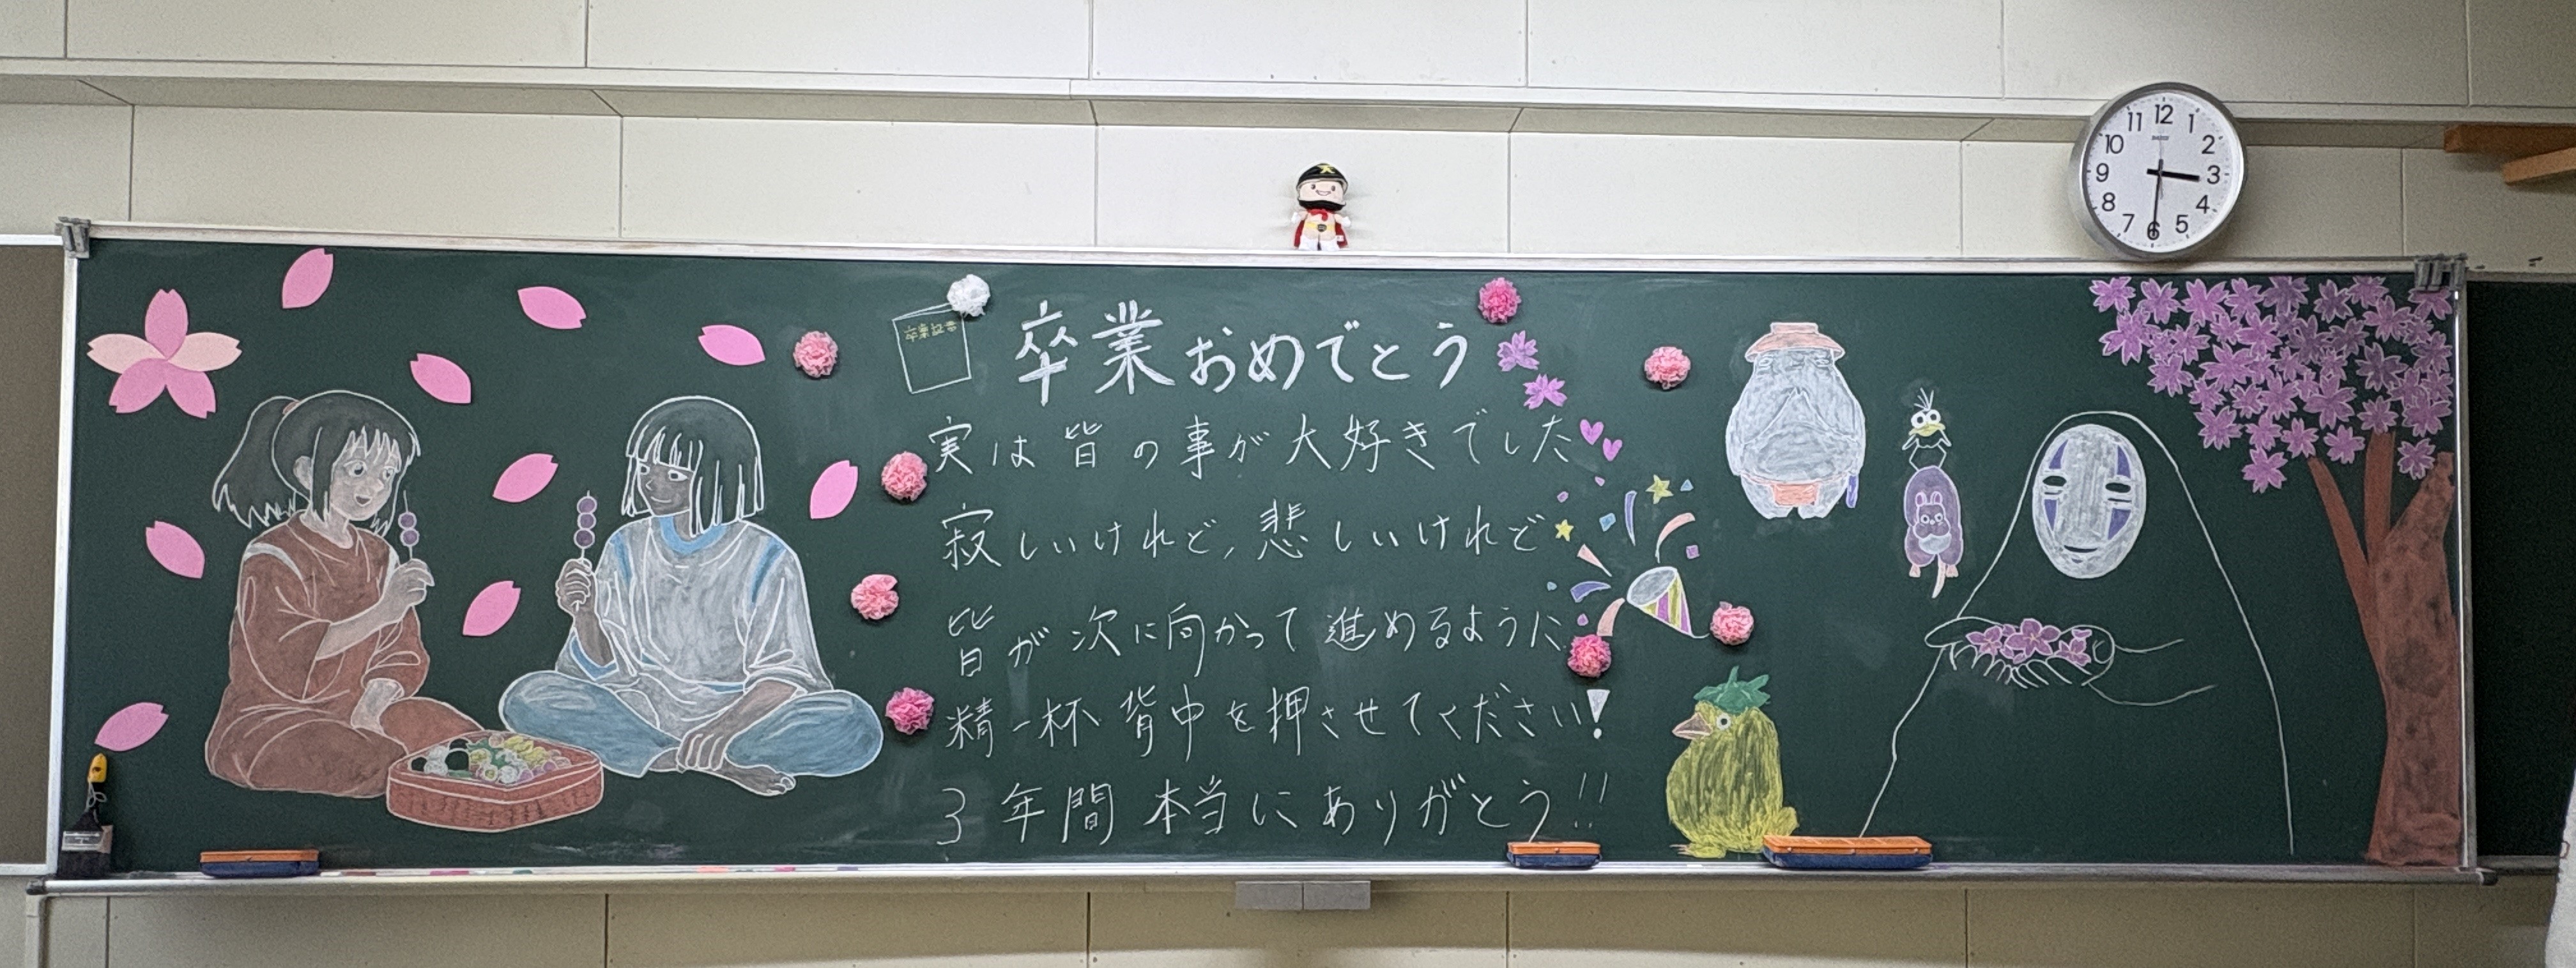 12
11 1
10 2
9 3
8 4
7 5
6
卒業証書
卒業おめでとう
実は皆の事が大好きでした
寂しいけれど、悲しいけれど
皆が次に向かって進めるように
精一杯背中を押させてください!
3年間本当にありがとう!!